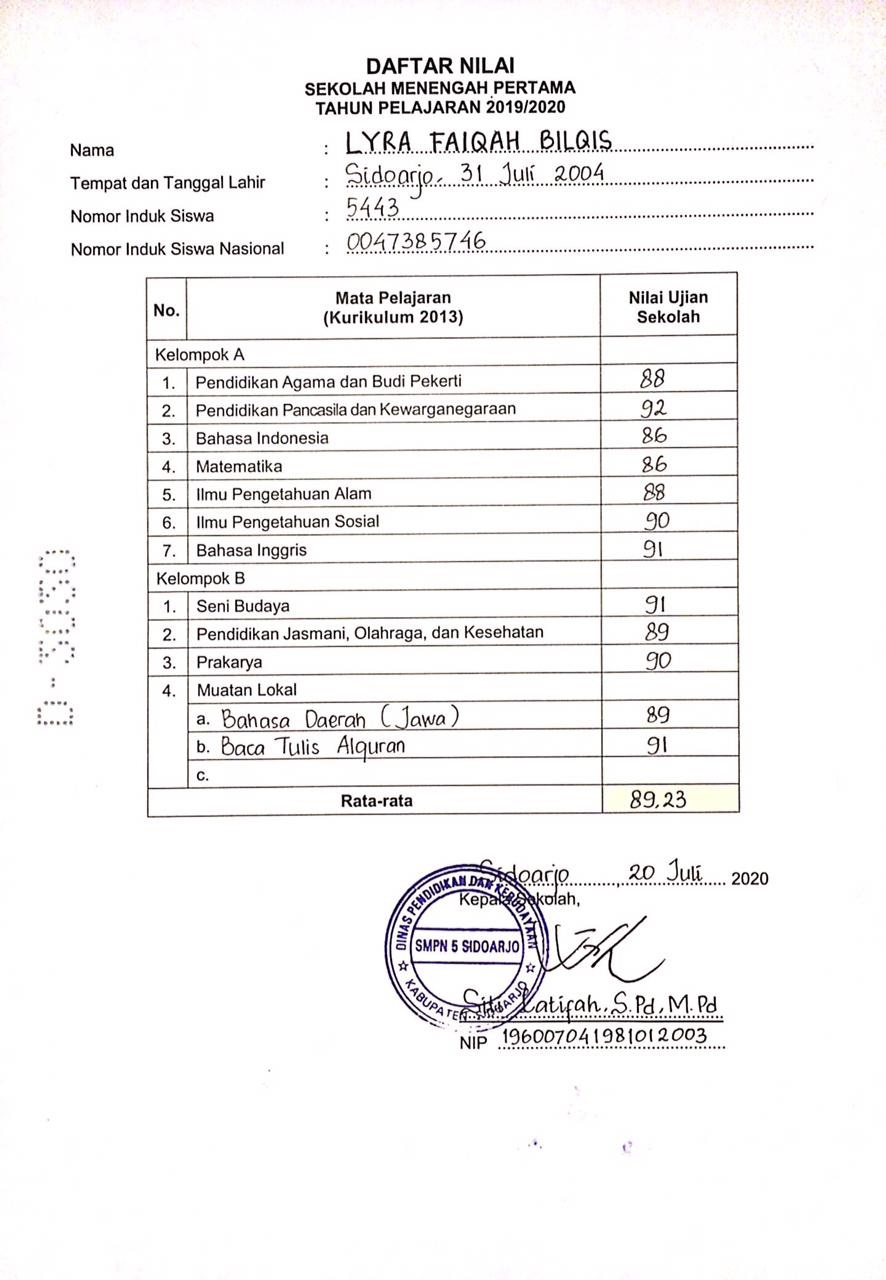 DAFTAR NILAI
SEKOLAH MENENGAH PERTAMA
TAHUN PELAJARAN 2019/2020
Nama : LYRA FAIQAH BILQIS
Tempat dan Tanggal Lahir : Sidoarjo, 31 Juli 2004
Nomor Induk Siswa : 5443
Nomor Induk Siswa Nasional : 0047385746
No. Mata Pelajaran (Kurikulum 2013) Nilai Ujian Sekolah
Kelompok A
1. Pendidikan Agama dan Budi Pekerti 88
2. Pendidikan Pancasila dan Kewarganegaraan 92
3. Bahasa Indonesia 86
4. Matematika 86
5. Ilmu Pengetahuan Alam 88
6. Ilmu Pengetahuan Sosial 90
7. Bahasa Inggris 91
Kelompok B
1. Seni Budaya 91
2. Pendidikan Jasmani, Olahraga, dan Kesehatan 89
3. Prakarya 90
4. Muatan Lokal
a. Bahasa Daerah (Jawa) 89
b. Baca Tulis Alquran 91
c.
Rata-rata 89,23
D-3050
Sidoarjo, 20 Juli 2020
Kepala Sekolah,
DINAS PENDIDIKAN DAN KEBUDAYAAN
SMPN 5 SIDOARJO
KABUPATEN SIDOARJO
Siti Latifah, S.Pd, M.Pd
NIP 196007041981012003